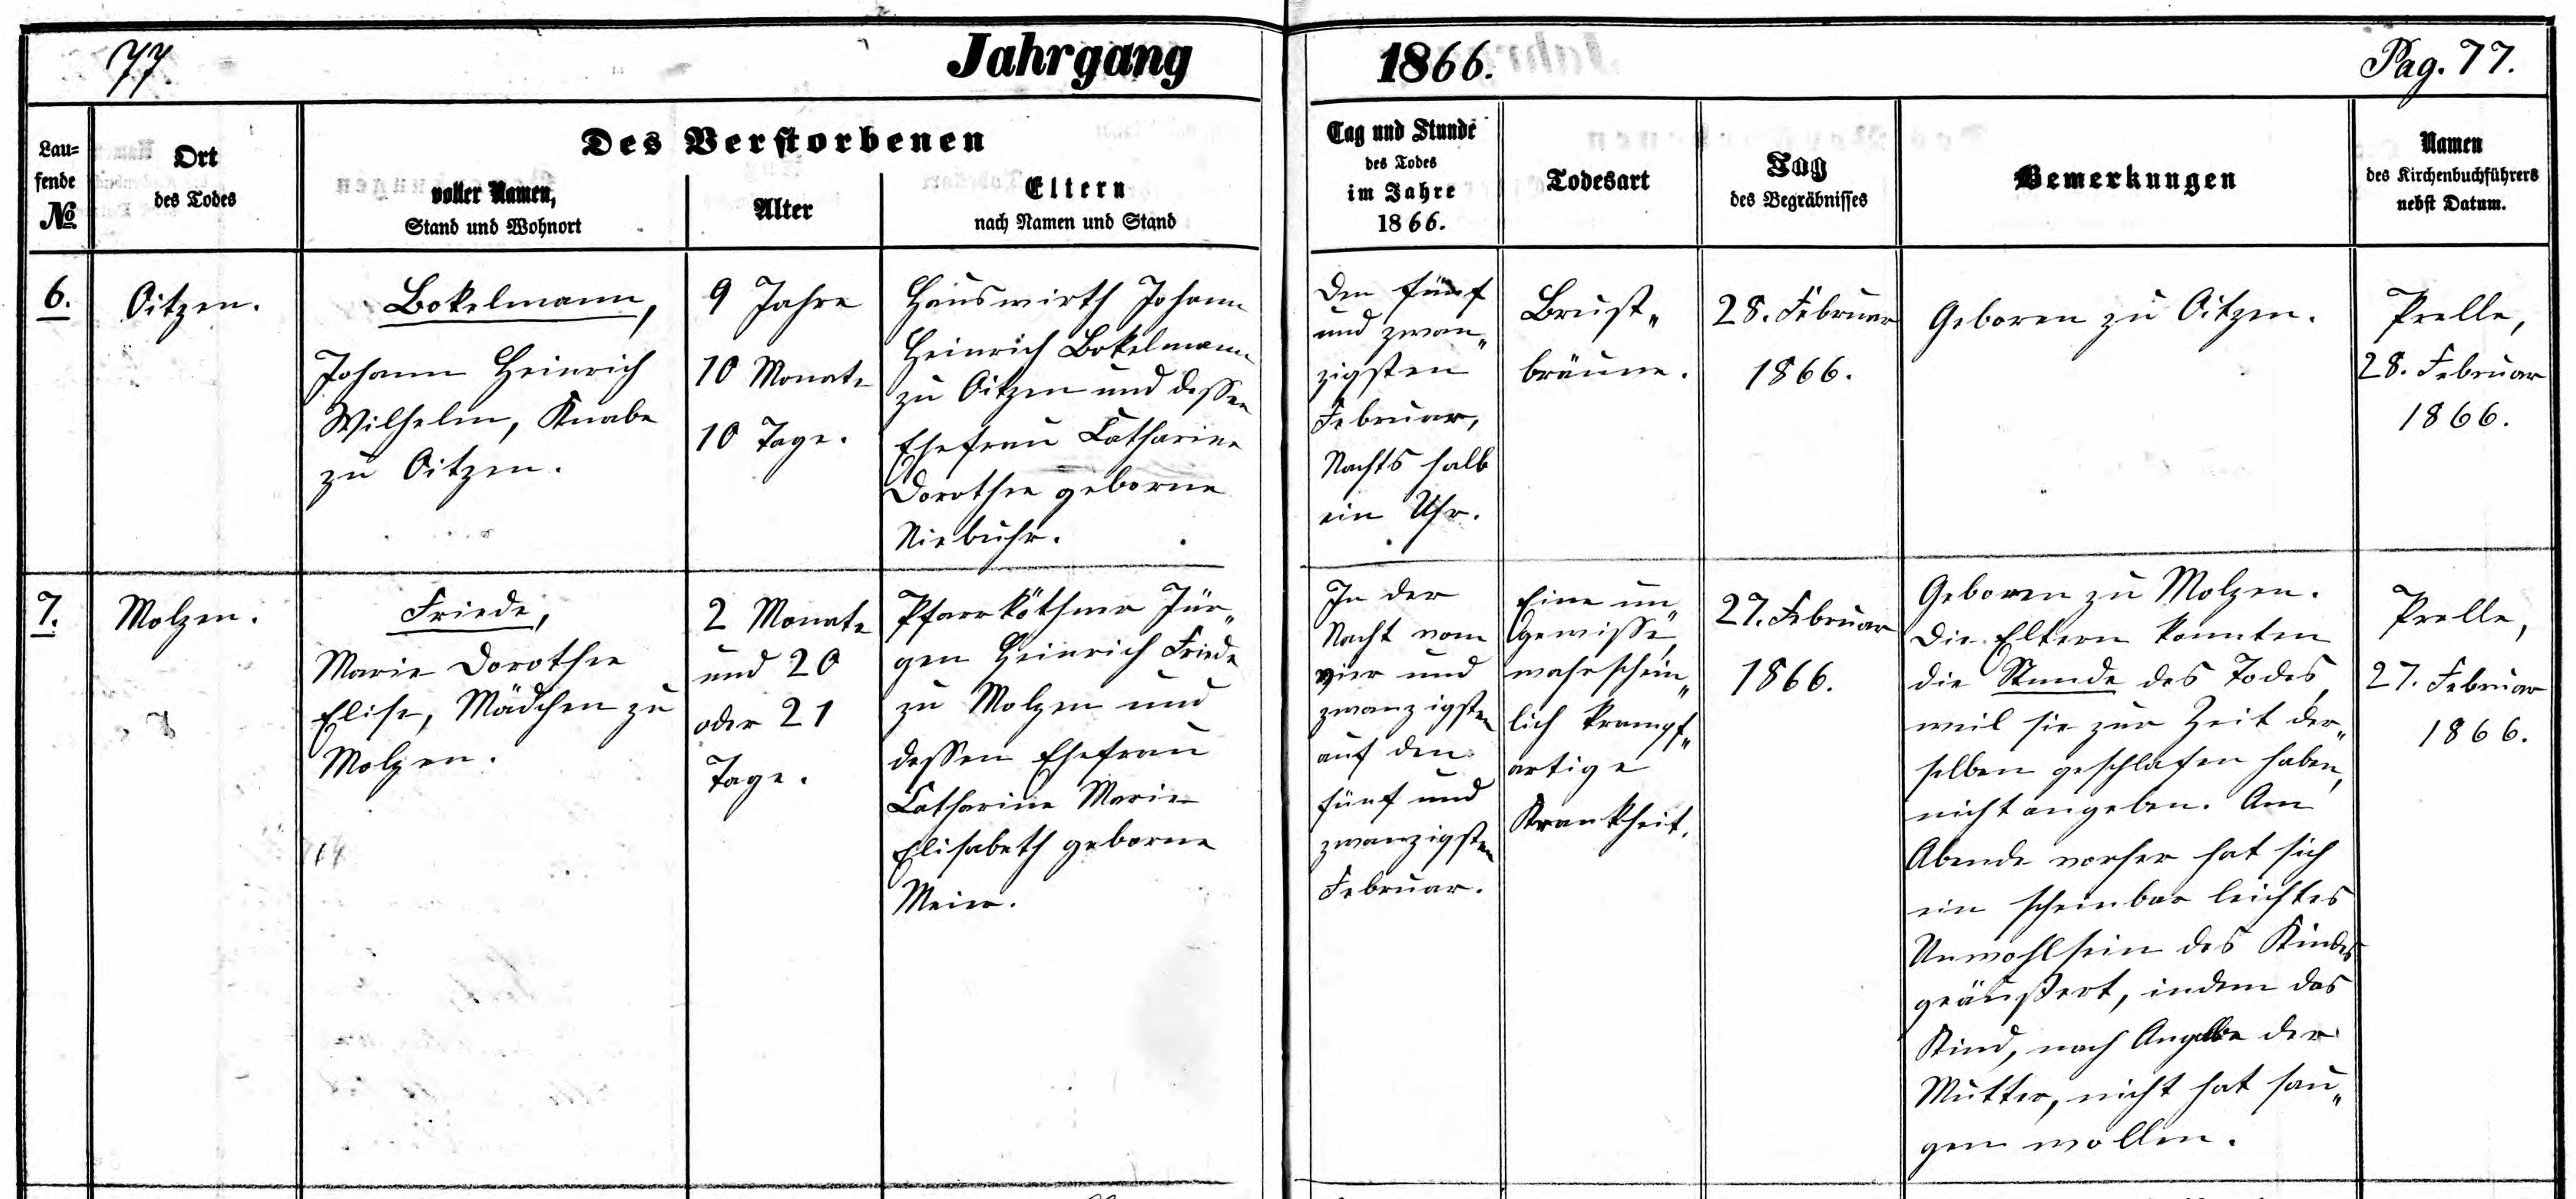 77
Jahrgang
1866.
Pag. 77.
Lau=
fende
No
Ort
des Todes
Des Verstorbenen
voller Namen,
Stand und Wohnort
Alter
Eltern
nach Namen und Stand
Tag und Stunde
des Todes
im Jahre
1866.
Todesart
Tag
des Begräbnisses
Bemerkungen
Namen
des Kirchenbuchführers
nebst Datum.
6.
Oitzen.
Bokelmann,
Johann Heinrich
Wilhelm, Knabe
zu Oitzen.
9 Jahre
10 Monate
10 Tage.
Hauswirth Johann
Heinrich Bokelmann
zu Oitzen und dessen
Ehefrau Catharine
Dorothee geborne
Niebuhr.
Den fünf
und zwan„
zigsten
Februar,
Nachts halb
ein Uhr.
Brust„
bräune.
28. Februar
1866.
Geboren zu Oitzen.
Prelle,
28. Februar
1866.
7.
Molzen.
Friede,
Marie Dorothee
Elise, Mädchen zu
Molzen.
2 Monate
und 20
oder 21
Tage.
Pfarrköthner Jür„
gen Heinrich Friede
zu Molzen und
dessen Ehefrau
Catharine Marie
Elisabeth geborne
Meier.
In der
Nacht vom
vier und
zwanzigsten
auf den
fünf und
zwanzigsten
Februar.
Eine un„
gewisse,
wahrschein„
lich krampf„
artige
Krankheit.
27. Februar
1866.
Geboren zu Molzen.
Die Eltern konnten
die Stunde des Todes,
weil sie zur Zeit der„
selben geschlafen haben,
nicht angeben. Am
Abende vorher hat sich
ein scheinbar leichtes
Unwohlsein des Kindes
geäußert, indem das
Kind, nach Angabe der
Mutter, nicht hat sau„
gen wollen.
Prelle,
27. Februar
1866.